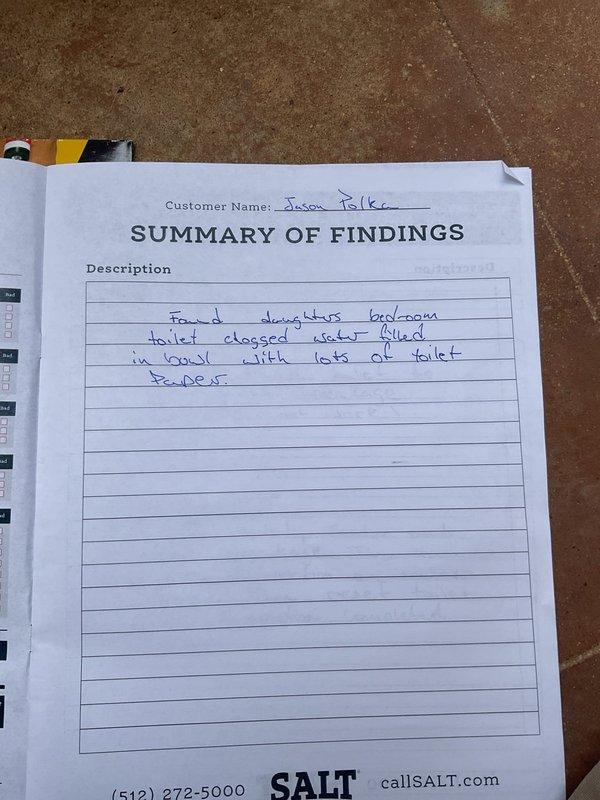 Customer Name: Jason Polka
SUMMARY OF FINDINGS
Description
Found daughters bedroom
toilet clogged water filled
in bowl with lots of toilet
Paper.
(512) 272-5000 SALT callSALT.com
Bad
Bad
Bad